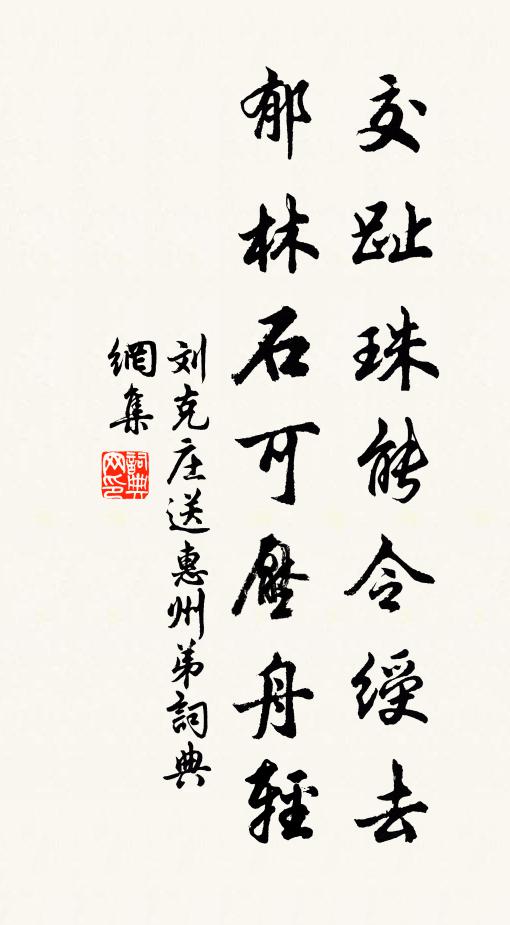 交趾珠能令綬去
郁林石可壓舟輕
刘克庄送惠州弟詞典
網集
詞典
网印